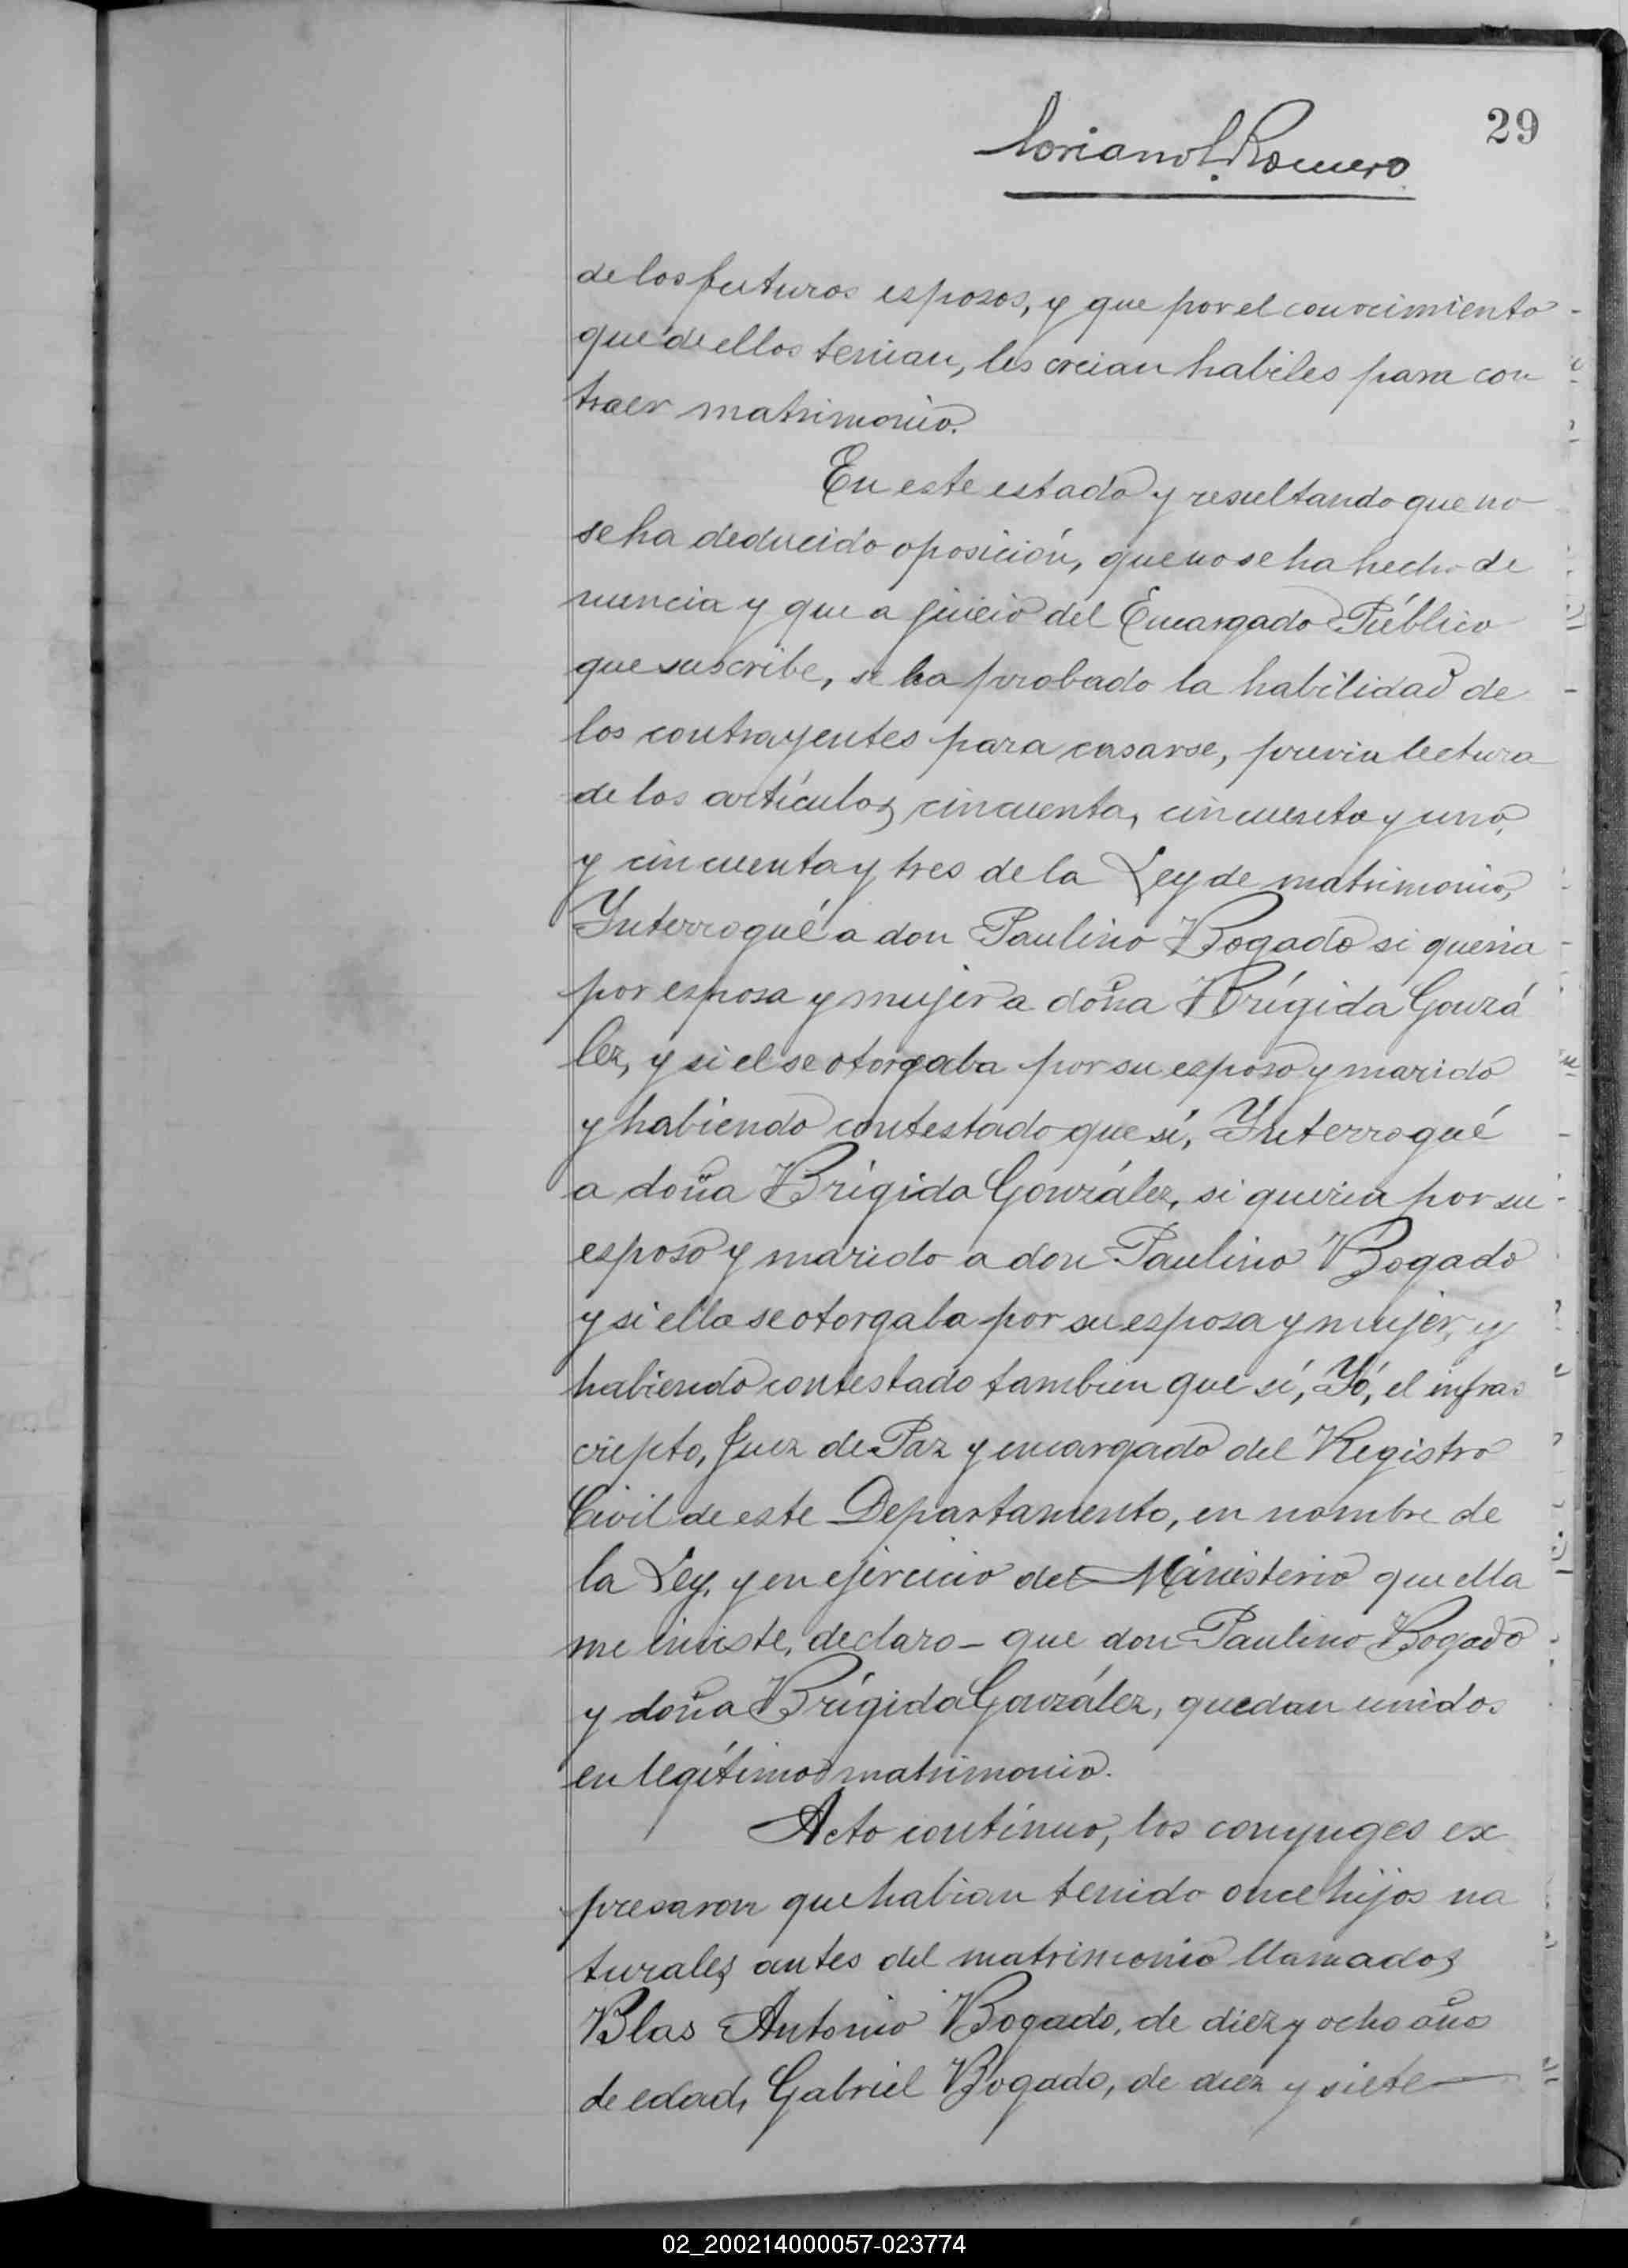 29
Soriano L. Romero
de los futuros esposos, y que por el conocimiento
que de ellos tenian, les creian habiles para con
traer matrimonio.
En este estado y resultando que no
se ha deducido oposición, que no se ha hecho de
nuncia y que a juicio del Encargado Público
que suscribe, se ha probado la habilidad de
los contrayentes para casarse, previa lectura
de los artículos cincuenta, cincuenta y uno,
y cincuenta y tres de la Ley de matrimonio,
Interrogué a don Paulino Bogado si queria
por esposa y mujer a doña Brígida Gonzá
lez, y si el se otorgaba por su esposo y marido
y habiendo contestado que sí, Interrogué
a doña Brígida González, si queria por su
esposo y marido a don Paulino Bogado
y si ella se otorgaba por su esposa y mujer, y
habiendo contestado tambien que sí, Yó, el infras
cripto, Juez de Paz y encargado del Registro
Civil de este Departamento, en nombre de
la Ley, y en ejercicio del Ministerio que ella
me inviste, declaro - que don Paulino Bogado
y doña Brígida González, quedan unidos
en legítimo matrimonio.
Acto contínuo, los conyuges ex
presaron que habian tenido once hijos na
turales antes del matrimonio llamados
Blas Antonio Bogado, de diez y ocho años
de edad, Gabriel Bogado, de diez y siete
02_200214000057-023774